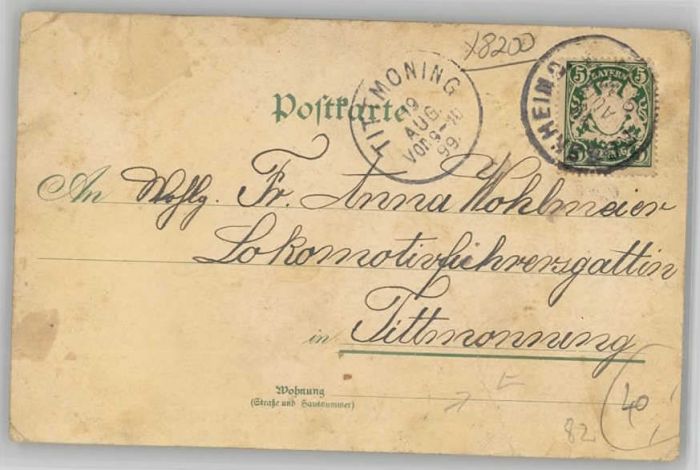 x8200
TITTMONING
19
AUG.
VOR 9-10
99.
HEIM
5 BAYERN 5
5
Postkarte
An Wohlg. Fr. Anna Wohlmeier
Lokomotivführersgattin
in Tittmonnung
Wohnung
(Straße und Hausnummer)
40
82